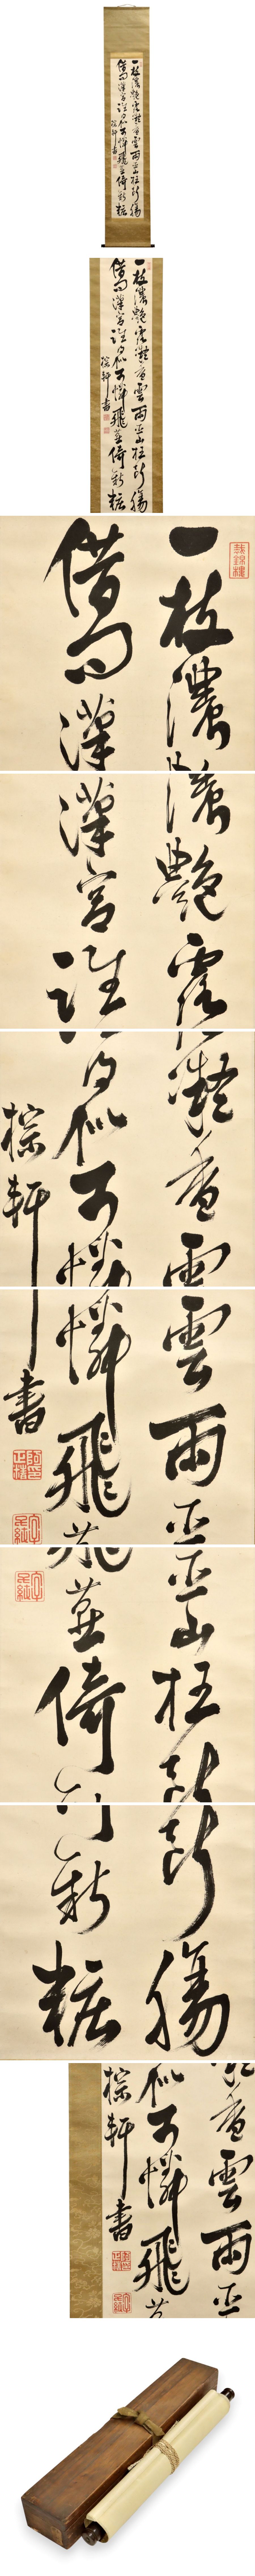 一枝濃艶露凝香雲雨巫山枉斷腸
借問漢宮誰得似可憐飛燕倚新粧
棕軒書